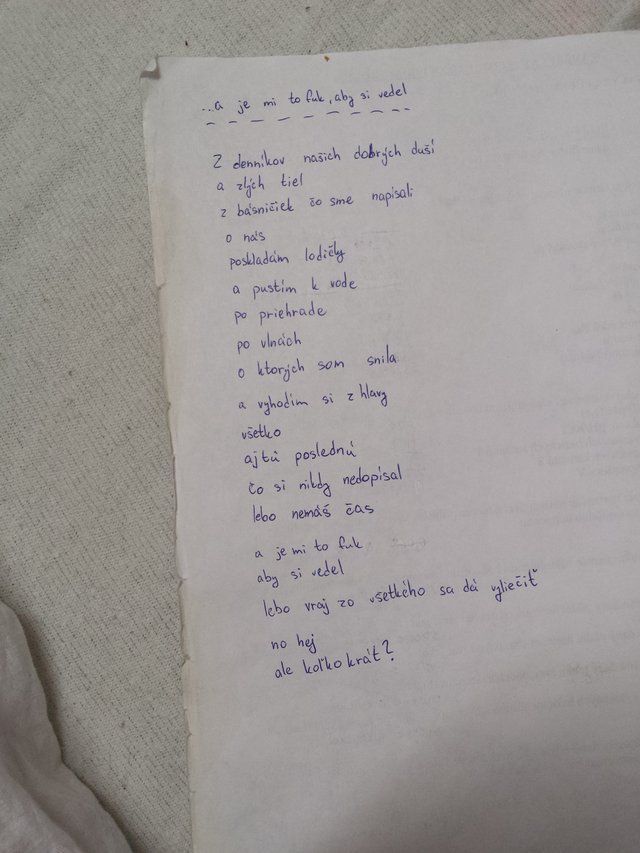 ...a je mi to fuk, aby si vedel
Z denníkov našich dobrých duší
a zlých tiel
z básničiek čo sme napísali
o nás
poskladám lodičky
a pustím k vode
po priehrade
po vlnách
o ktorých som snila
a vyhodím si z hlavy
všetko
aj tú poslednú
čo si nikdy nedopísal
lebo nemáš čas
a je mi to fuk
aby si vedel
lebo vraj zo všetkého sa dá vyliečiť
no hej
ale koľko krát?